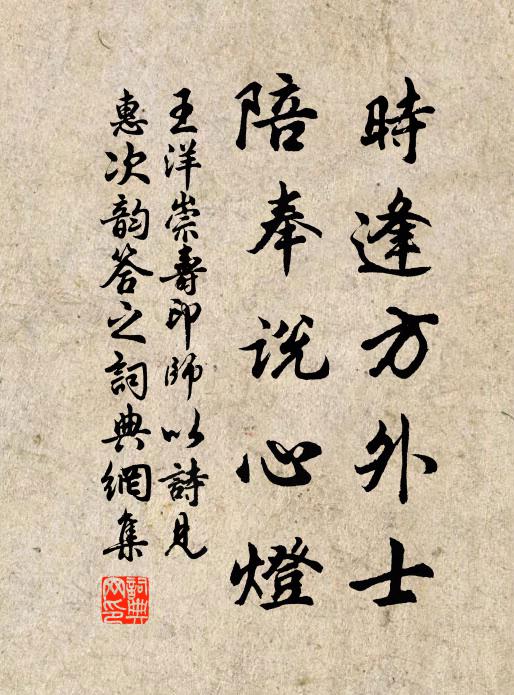 時逢方外士
陪奉說心燈
王洋崇壽印師以詩見
惠次韵答之詞典網集
詞典
网印